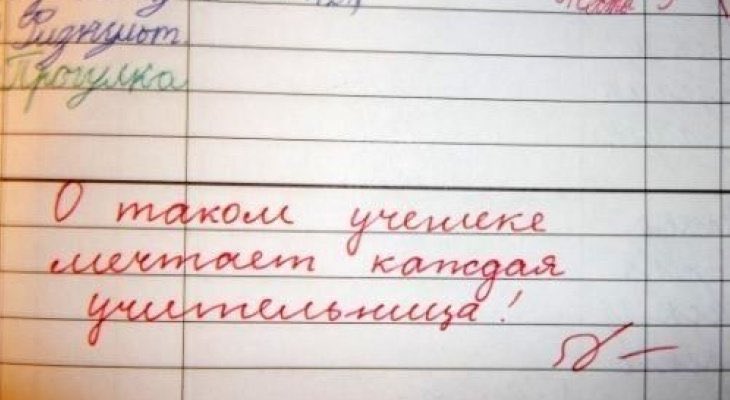 Прогулка
О таком ученике
мечтает каждая
учительница!